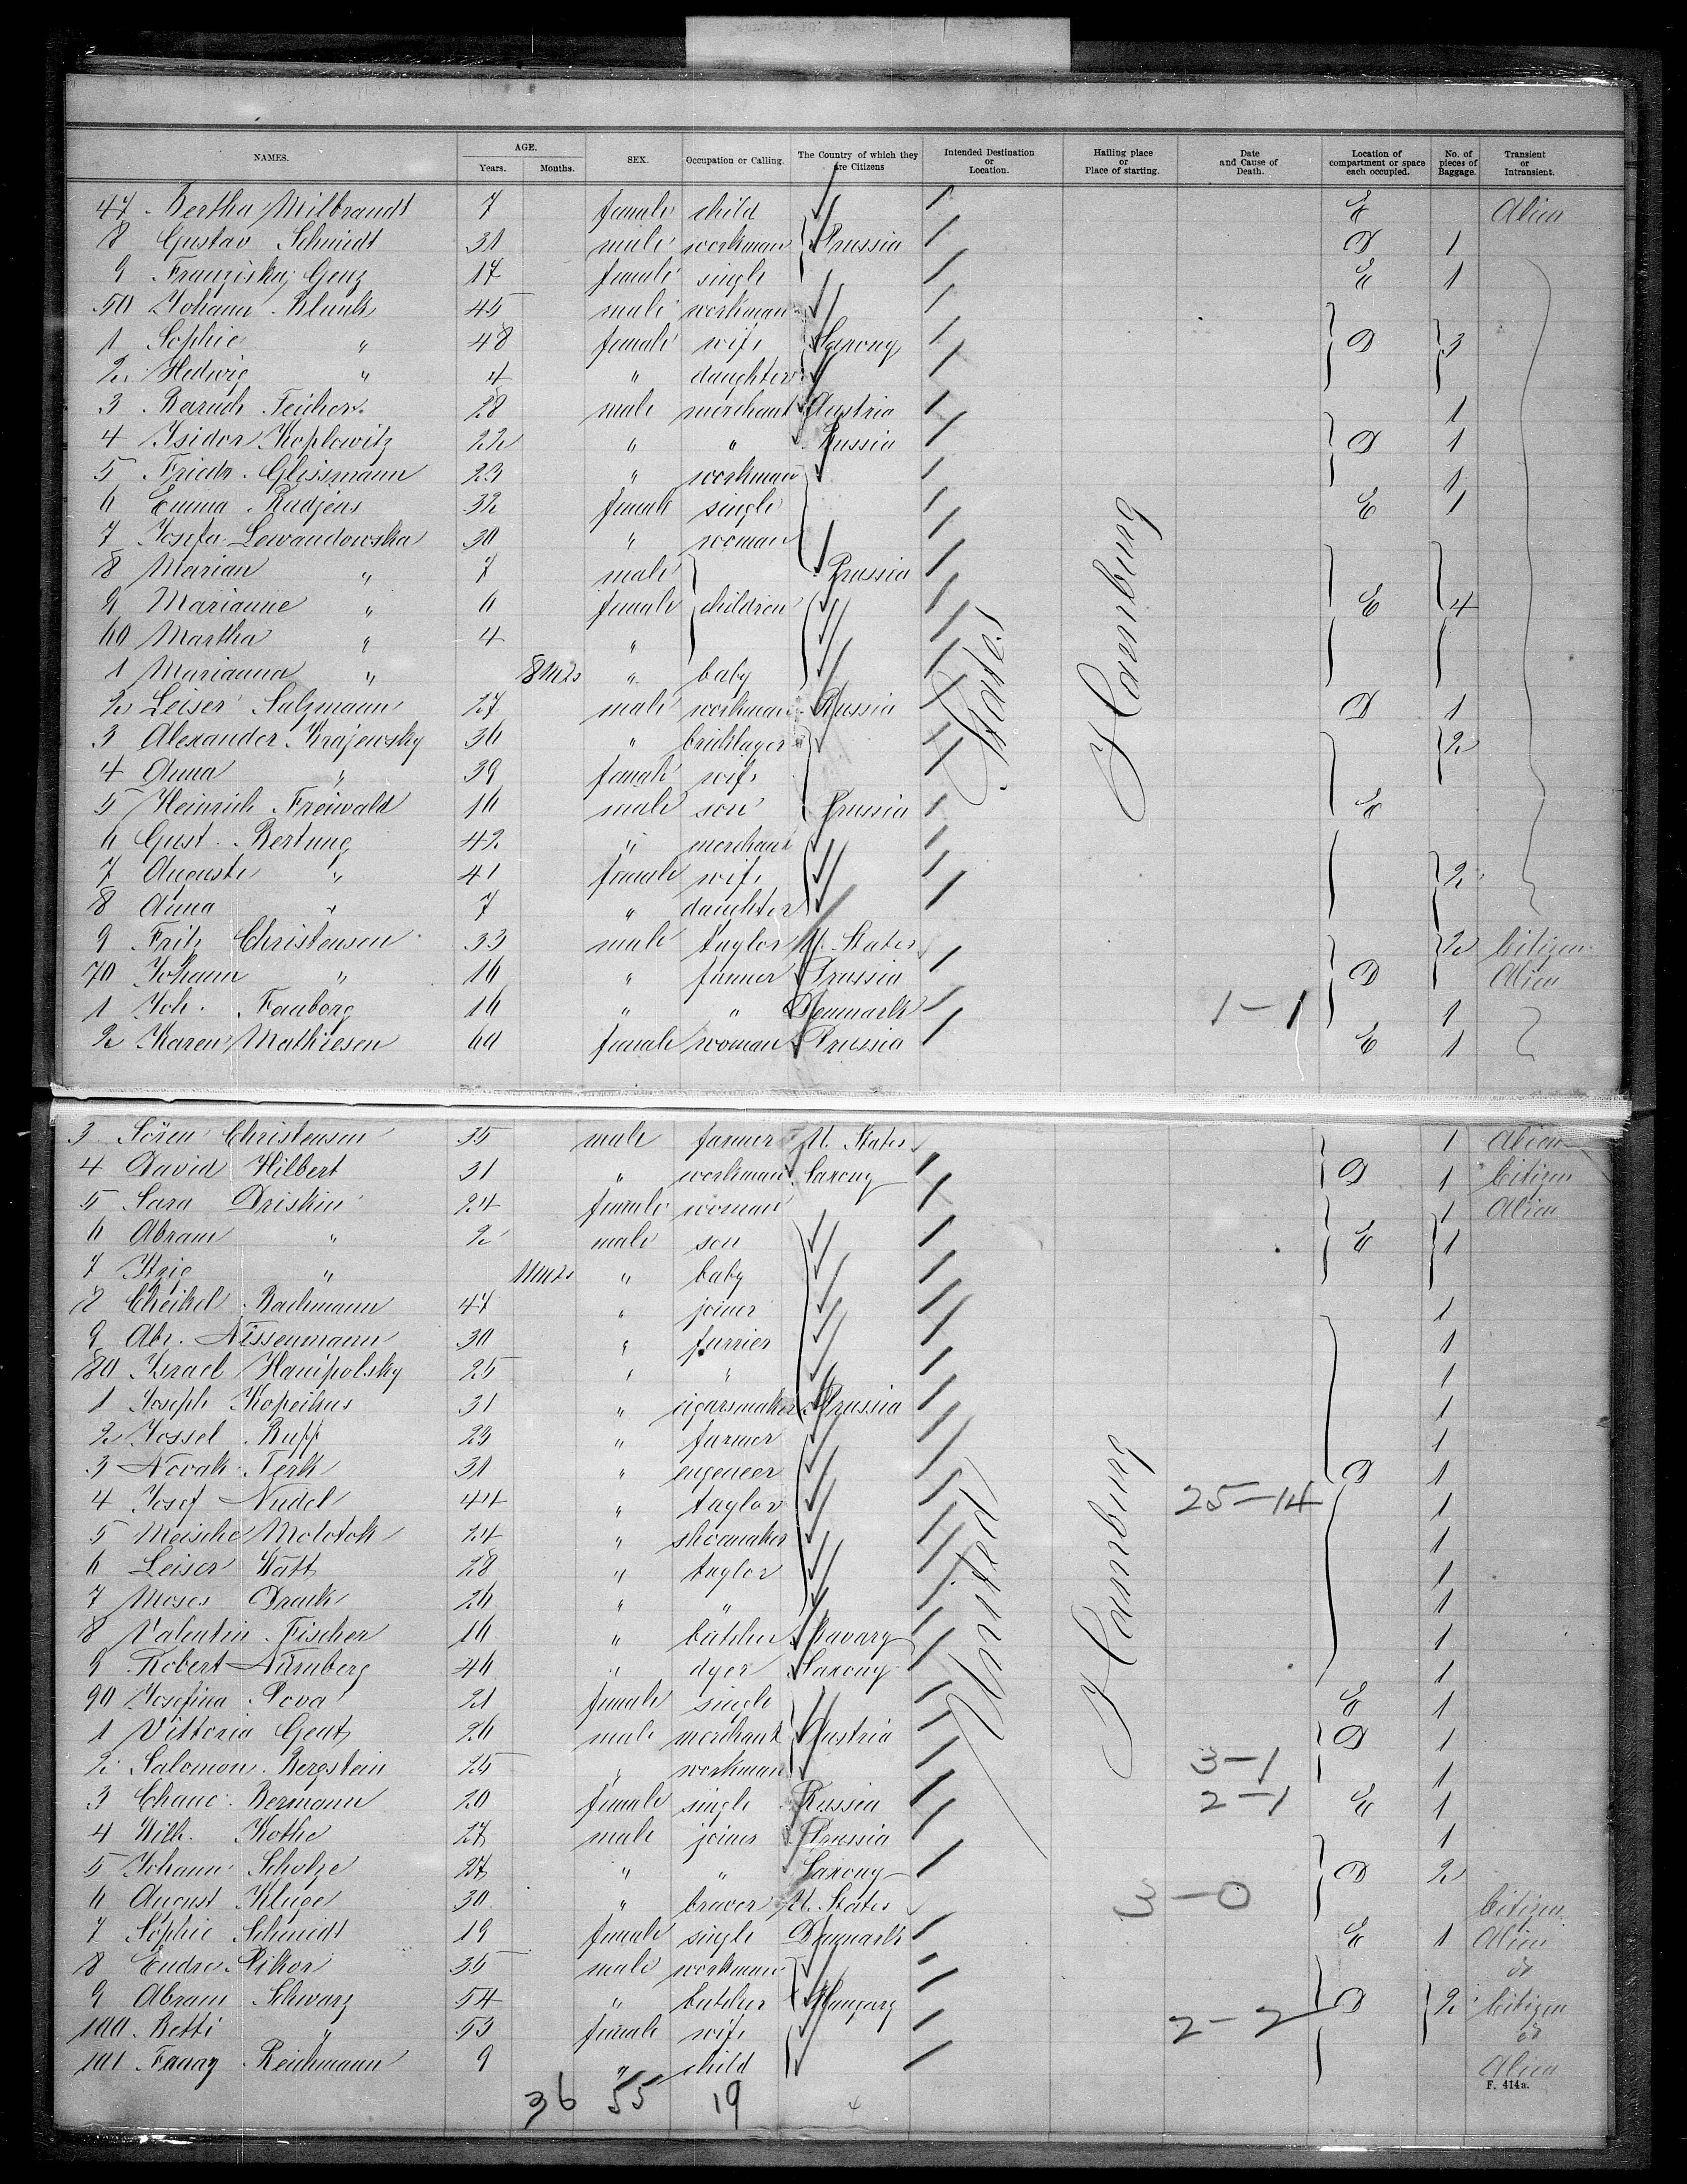 NAMES. AGE. Years. Months. SEX. Occupation or Calling. The Country of which they are Citizens Intended Destination or Location. Hailing place or Place of starting. Date and Cause of Death. Location of compartment or space each occupied. No. of pieces of Baggage. Transient or Intransient.
47 Bertha Milbrandt 7 female child E Alien
8 Gustav Schmidt 31 male workman Prussia D 1
9 Franziska Genz 17 female single E 1
50 Johann Klunk 45 male workman
1 Sophie " 48 female wife Saxony D 3
2 Hedwig " 4 " daughter
3 Baruch Teicher 28 male merchant Austria 1
4 Isidor Koplowitz 22 " " Russia D 1
5 Friedr. Glissmann 23 " workman 1
6 Emma Radjens 32 female single E 1
7 Josefa Lewandowska 30 " woman
8 Marian " 7 male Prussia
9 Marianne " 6 female children E 4
60 Martha " 4 "
1 Marianna " 8 mts " baby
2 Leiser Salzmann 27 male workman Russia D 1
3 Alexander Krajewsky 36 " bricklayer 2
4 Anna " 39 female wife
5 Heinrich Freiwald 16 male son Prussia E
6 Gust. Bertung 42 " merchant
7 Auguste " 41 female wife 2
8 Anna " 7 " daughter
9 Fritz Christensen 33 male taylor U. States 2 Citizen
70 Johann " 16 " farmer Prussia D Alien
1 Joh. Fauborg 16 " " Denmark 1-1 1
2 Karen Mathiesen 60 female woman Prussia E 1
States
Hamburg
3 Sören Christensen 35 male farmer U. States 1 Alien
4 David Hilbert 31 " workman Saxony D 1 Citizen
5 Sara Driskin 24 female woman 1 Alien
6 Abram " 2 male son E 1
7 Itzig " 11 mts " baby
8 Cheikel Bachmann 47 " joiner 1
9 Abr. Nissenmann 30 " furrier 1
80 Israel Hanipolsky 25 " " 1
1 Joseph Kopeikus 31 " cigarsmaker Prussia 1
2 Jossel Rupp 23 " farmer 1
3 Novak Terk 31 " engeneer D 1
4 Josef Nudel 44 " taylor 25-14 1
5 Meische Molotok 24 " shoemaker 1
6 Leiser Watt 28 " taylor 1
7 Moses Drach 26 " " 1
8 Valentin Fischer 16 " butcher Bavary 1
9 Robert Nürnberg 46 " dyer Saxony 1
90 Josefina Pova 21 female single E 1
1 Vittoria Geat 26 male merchant Austria D 1
2 Salomon Bergstein 25 " workman 3-1 1
3 Chane Bermann 20 female single Russia 2-1 E 1
4 Wilh. Kothe 27 male joiner Prussia 1
5 Johann Scholze 27 " " Saxony D 2
6 August Kluge 30 " brewer U. States 3-0 Citizen
7 Sophie Schmidt 19 female single Denmark E 1 Alien
8 Endre Pikor 35 male workman do
9 Abram Schwarz 54 " butcher Hungary D 2 Citizen
100 Betti " 53 female wife 2-2 do
101 Fanny Reichmann 9 " child Alien
United
Hamburg
F. 414a.
36 55 19